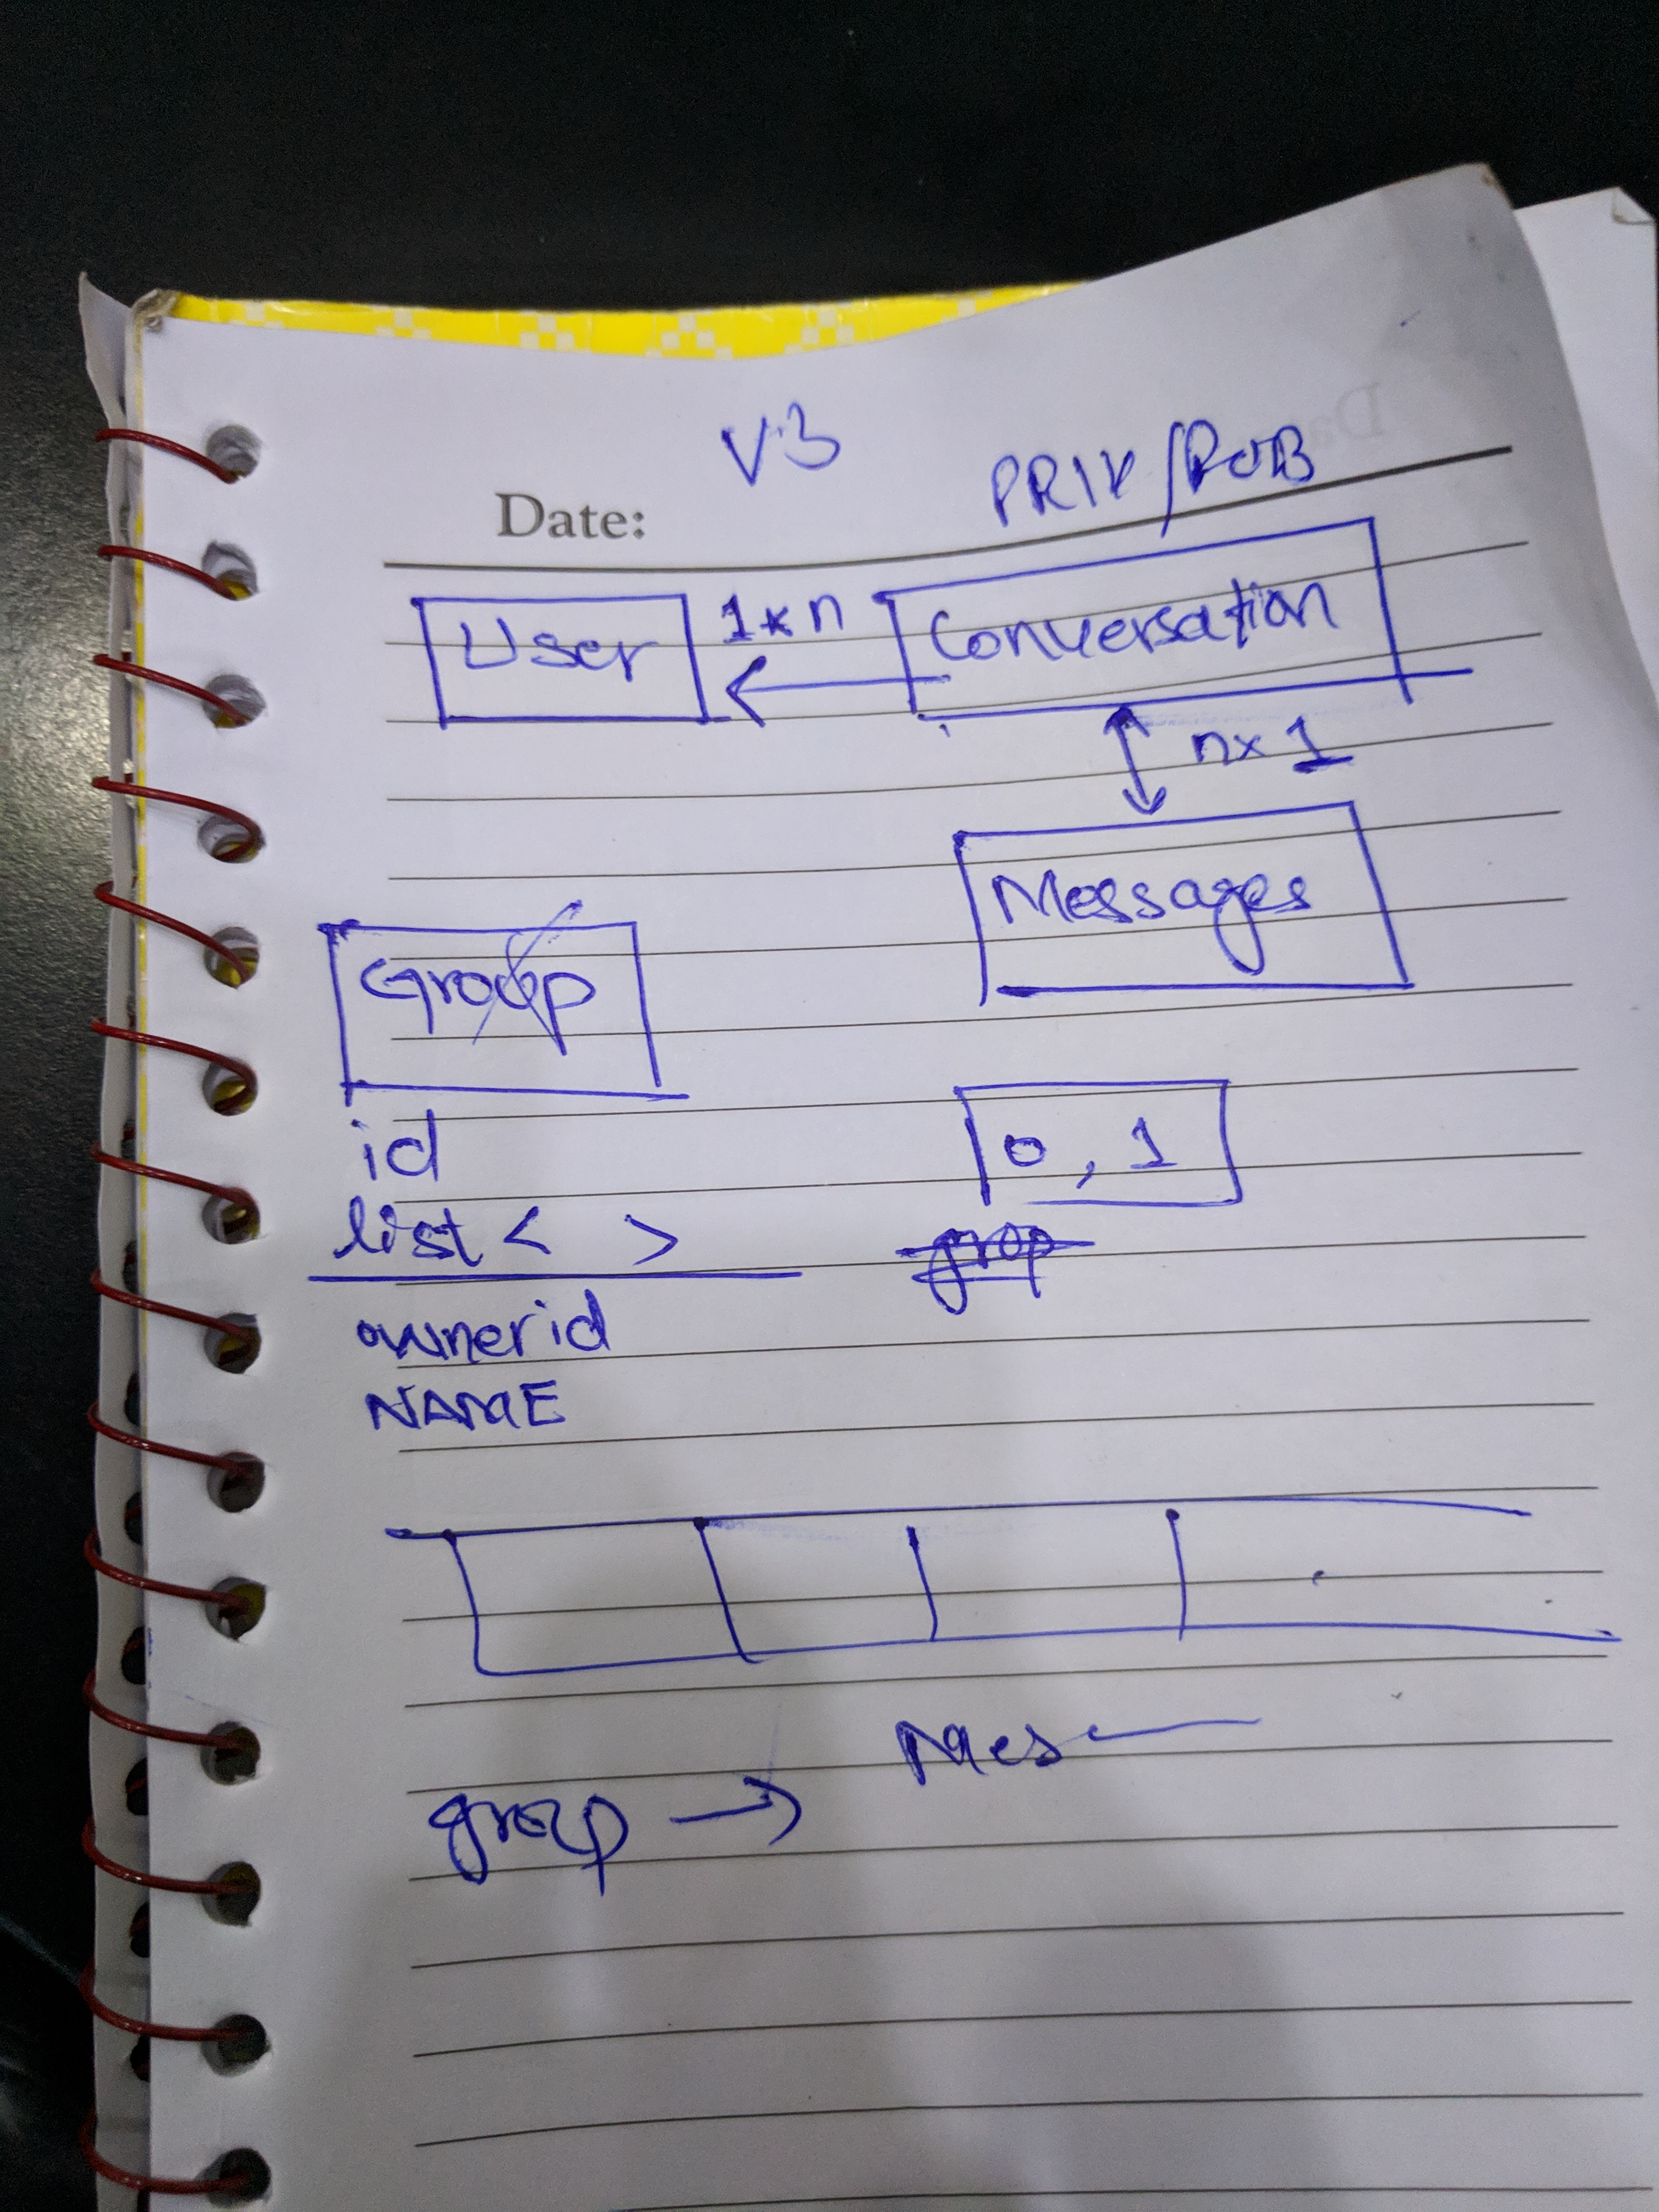 V3
PRIV/PUB
Date:
User
1xn
Conversation
nx1
Messages
Group
id
0, 1
list < >
grop
ownerid
NAME
Mes
group →